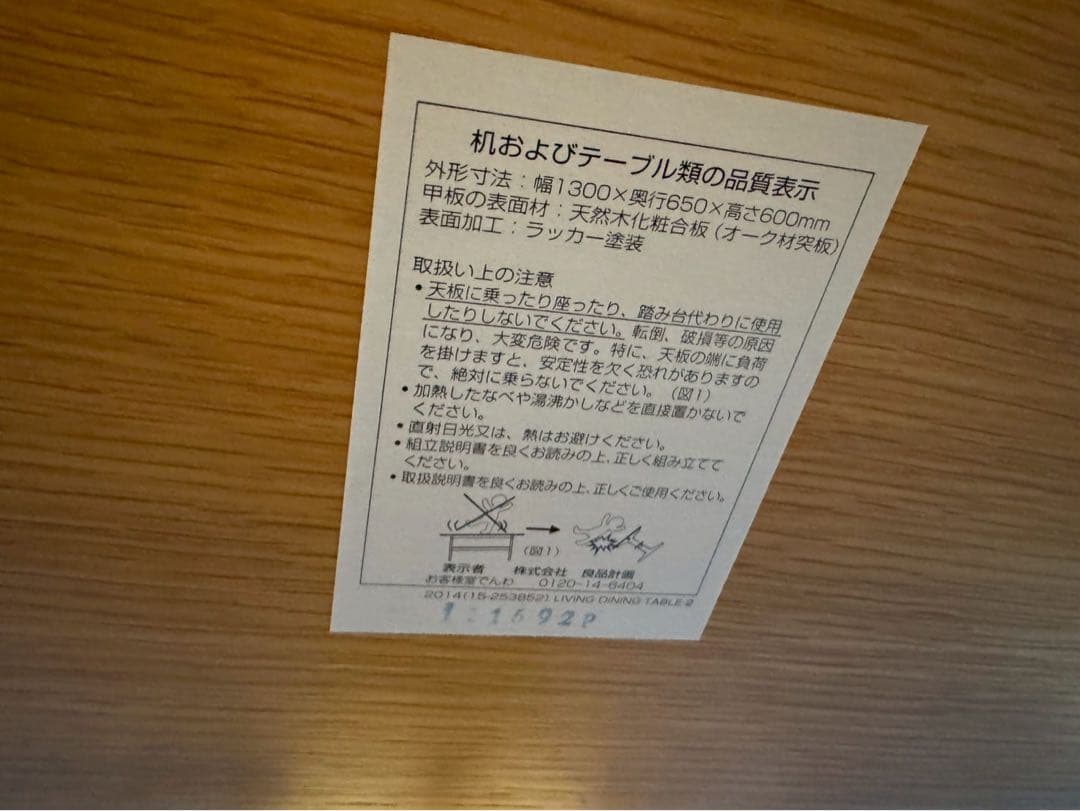 机およびテーブル類の品質表示
外形寸法：幅1300×奥行650×高さ600mm
甲板の表面材：天然木化粧合板（オーク材突板）
表面加工：ラッカー塗装
取扱い上の注意
•天板に乗ったり座ったり、踏み台代わりに使用
したりしないでください。転倒、破損等の原因
になり、大変危険です。特に、天板の端に負荷
を掛けますと、安定性を欠く恐れがありますの
で、絶対に乗らないでください。（図1）
•加熱したなべや湯沸かしなどを直接置かないで
ください。
•直射日光又は、熱はお避けください。
•組立説明書を良くお読みの上、正しく組み立てて
ください。
•取扱説明書を良くお読みの上、正しくご使用ください。
（図1）
表示者　株式会社　良品計画
お客様室でんわ　0120-14-6404
2014(15-253852) LIVING DINING TABLE-2